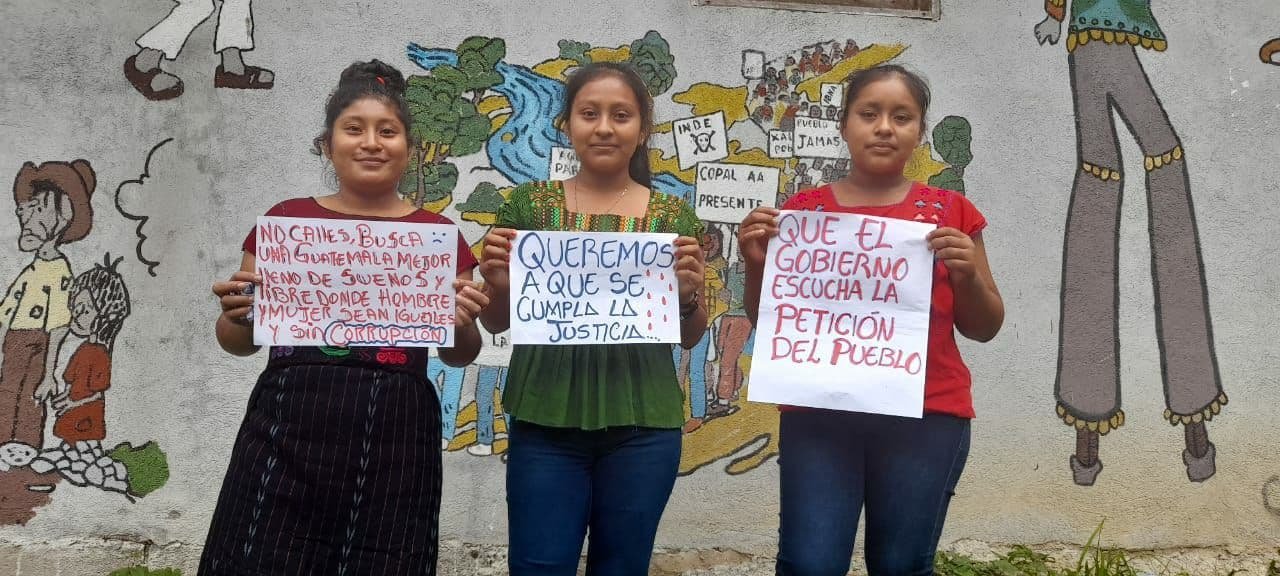 NO CALLES, BUSCA
UNA GUATEMALA MEJOR
LLENO DE SUEÑOS Y
LIBRE DONDE HOMBRE
Y MUJER SEAN IGUALES
Y SIN CORRUPCIÓN
QUEREMOS
A QUE SE
CUMPLA LA
JUSTICIA...
QUE EL
GOBIERNO
ESCUCHA LA
PETICIÓN
DEL PUEBLO
INDE
COPAL AA
PRESENTE
PUEBLO
JAMAS
LA